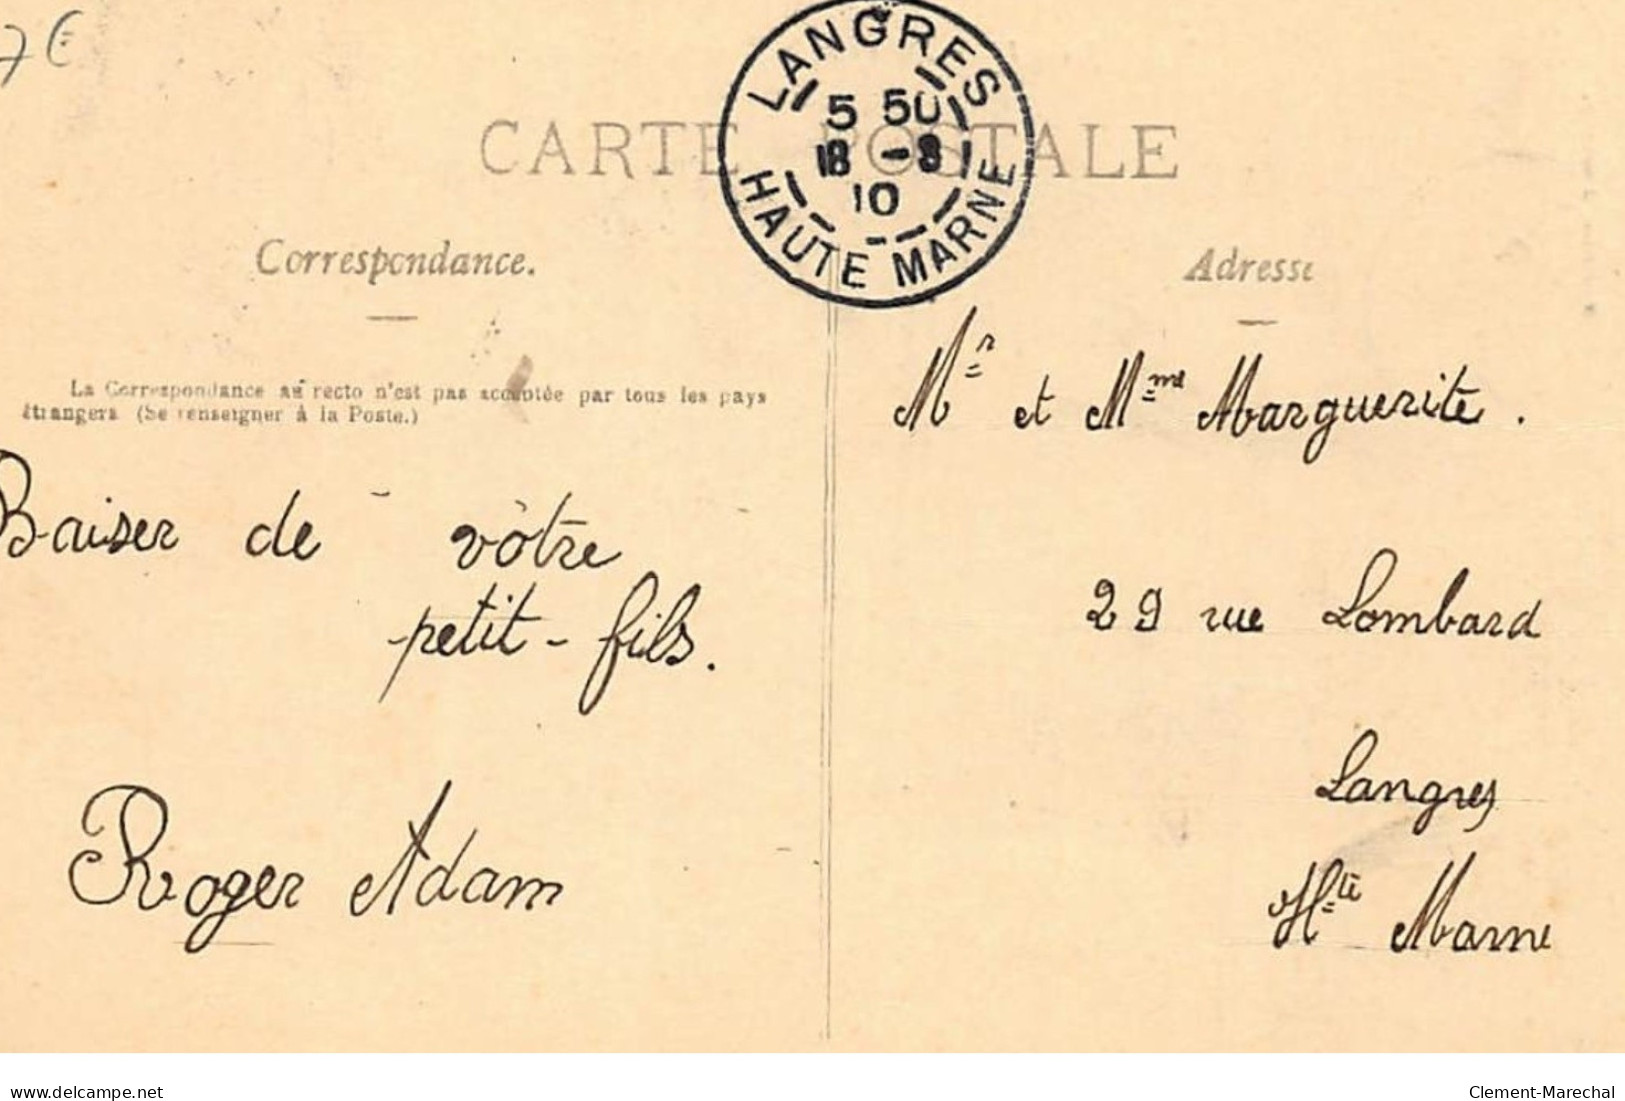 7€
LANGRES
5 50
18 -8
10
HAUTE MARNE
CARTE POSTALE
Correspondance.
La Correspondance au recto n'est pas acceptée par tous les pays
étrangers (Se renseigner à la Poste.)
Baiser de vôtre
petit-fils.
Roger Adam
Adresse
Mr et Mme Marguerite.
29 rue Lombard
Langres
Hte Marne
www.delcampe.net
Clement-Marechal